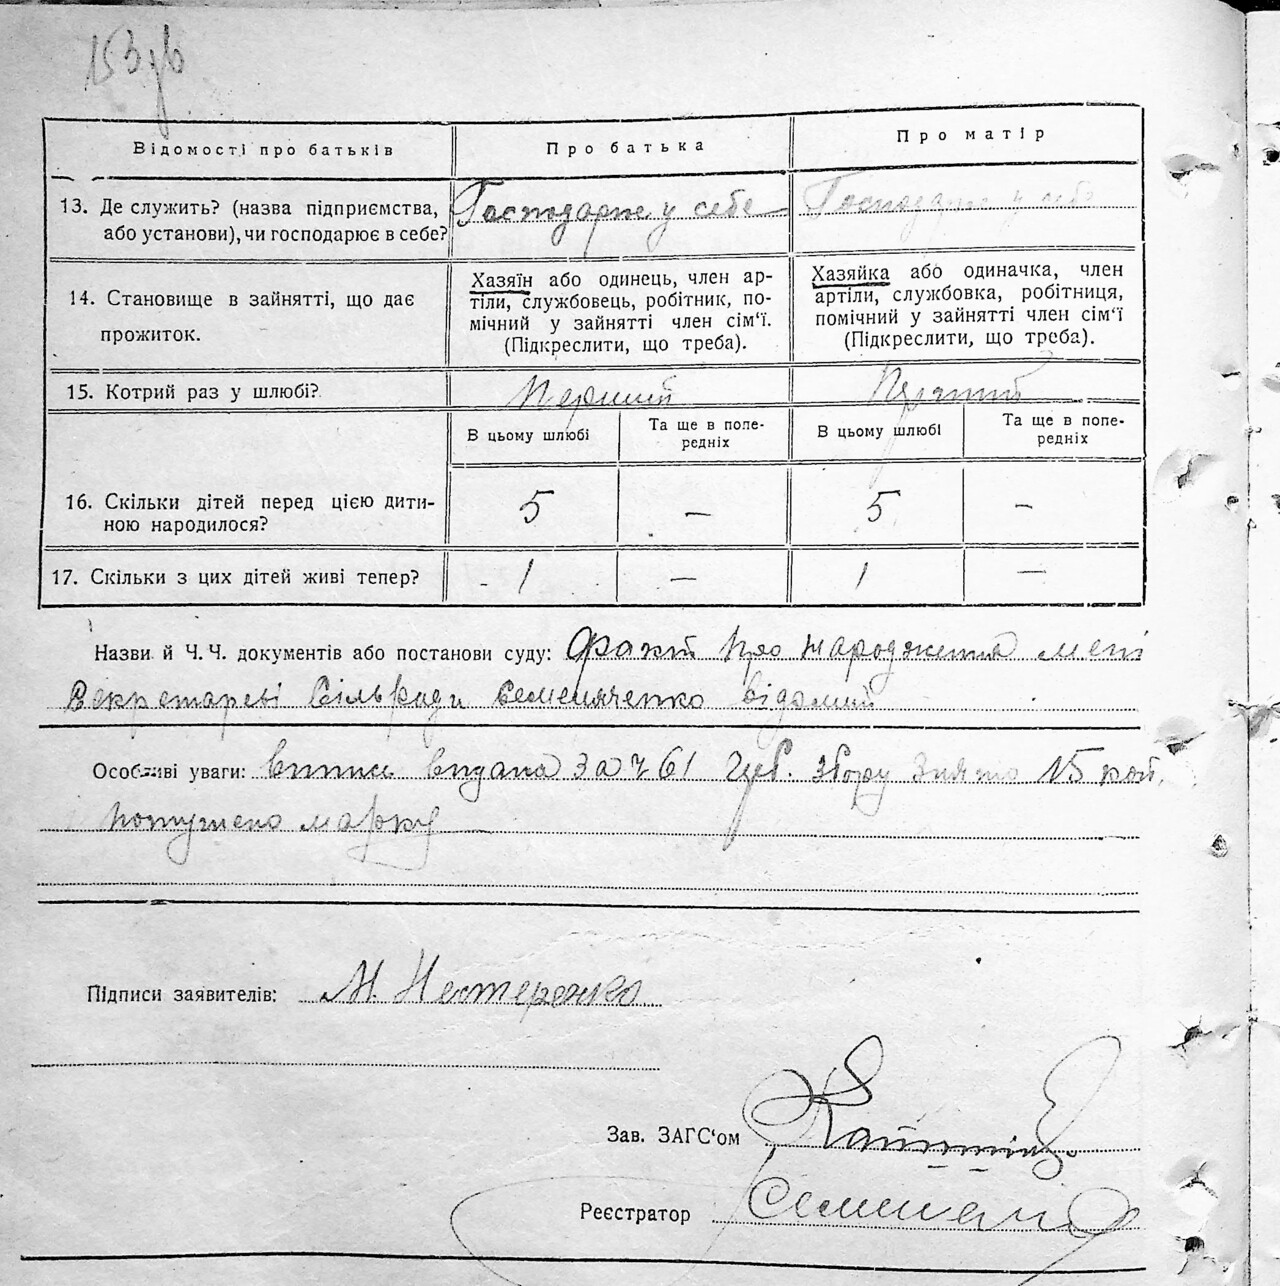 153 зв
Відомості про батьків
Про батька
Про матір
13. Де служить? (назва підприємства,
або установи), чи господарює в себе?
Господарює у себе
Господарює у себе
14. Становище в зайнятті, що дає
прожиток.
Хазяїн або одинець, член ар-
тіли, службовець, робітник, по-
мічний у зайнятті член сім'ї.
(Підкреслити, що треба).
Хазяйка або одиначка, член
артіли, службовка, робітниця,
помічний у зайнятті член сім'ї
(Підкреслити, що треба).
15. Котрий раз у шлюбі?
Перший
В цьому шлюбі
Та ще в попе-
редніх
В цьому шлюбі
Та ще в попе-
редніх
16. Скільки дітей перед цією дити-
ною народилося?
5
—
5
—
17. Скільки з цих дітей живі тепер?
1
—
1
—
Назви й Ч. Ч. документів або постанови суду: Факт про народження мені
Секретареві Сільради Семеняченко відомий
Особливі уваги: Випис видана за ч 61 збору знято 15 коп.
погашено марку
Підписи заявителів: М. Нестеренко
Зав. ЗАГС'ом
Реєстратор